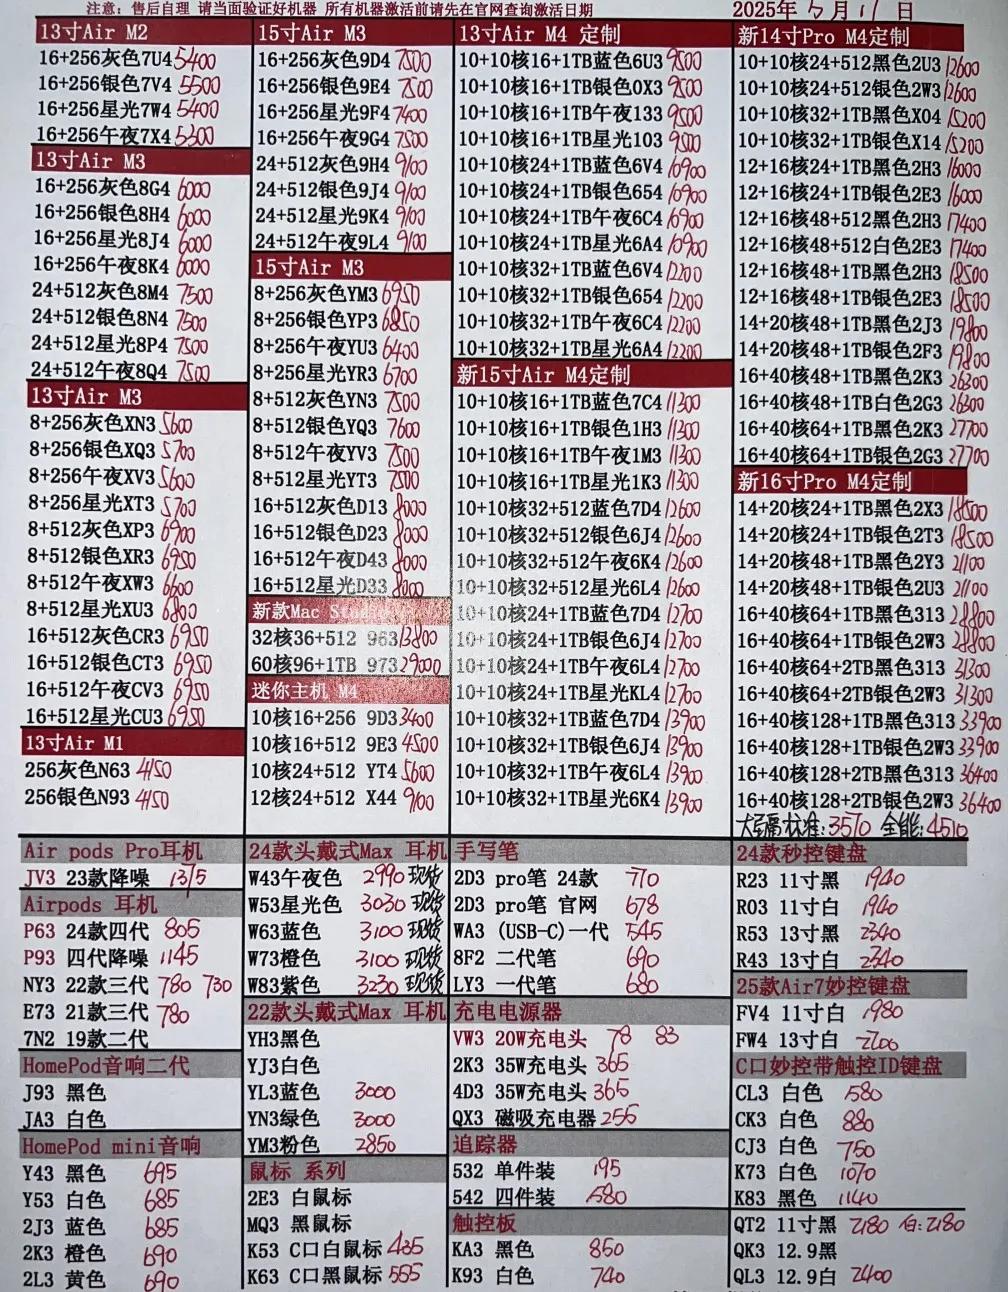 注意: 售后自理 请当面验证好机器 所有机器激活前请先在官网查询激活日期
2025年 5月 11日
13寸Air M2
16+256灰色7U4 5400
16+256银色7V4 5500
16+256星光7W4 5400
16+256午夜7X4 5300
13寸Air M3
16+256灰色8G4 6000
16+256银色8H4 6000
16+256星光8J4 6000
16+256午夜8K4 6000
24+512灰色8M4 7500
24+512银色8N4 7500
24+512星光8P4 7500
24+512午夜8Q4 7500
13寸Air M3
8+256灰色XN3 5600
8+256银色XQ3 5700
8+256午夜XV3 5600
8+256星光XT3 5700
8+512灰色XP3 6900
8+512银色XR3 6950
8+512午夜XW3 6600
8+512星光XU3 6800
16+512灰色CR3 6950
16+512银色CT3 6950
16+512午夜CV3 6950
16+512星光CU3 6950
13寸Air M1
256灰色N63 4150
256银色N93 4150
15寸Air M3
16+256灰色9D4 7500
16+256银色9E4 7500
16+256星光9F4 7400
16+256午夜9G4 7500
24+512灰色9H4 9100
24+512银色9J4 9100
24+512星光9K4 9100
24+512午夜9L4 9100
15寸Air M3
8+256灰色YM3 6950
8+256银色YP3 6850
8+256午夜YU3 6400
8+256星光YR3 6700
8+512灰色YN3 7500
8+512银色YQ3 7600
8+512午夜YV3 7500
8+512星光YT3 7500
16+512灰色D13 8000
16+512银色D23 8000
16+512午夜D43 8000
16+512星光D33 8000
新款Mac Studio
32核36+512 963 13800
60核96+1TB 973 29000
迷你主机 M4
10核16+256 9D3 3400
10核16+512 9E3 4500
10核24+512 YT4 5600
12核24+512 X44 9100
13寸Air M4 定制
10+10核16+1TB蓝色6U3 9500
10+10核16+1TB银色0X3 9500
10+10核16+1TB午夜133 9500
10+10核16+1TB星光103 9500
10+10核24+1TB蓝色6V4 10900
10+10核24+1TB银色654 10900
10+10核24+1TB午夜6C4 10900
10+10核24+1TB星光6A4 10900
10+10核32+1TB蓝色6V4 12200
10+10核32+1TB银色654 12200
10+10核32+1TB午夜6C4 12200
10+10核32+1TB星光6A4 12200
新15寸Air M4定制
10+10核16+1TB蓝色7C4 11300
10+10核16+1TB银色1H3 11300
10+10核16+1TB午夜1M3 11300
10+10核16+1TB星光1K3 11300
10+10核32+512蓝色7D4 12600
10+10核32+512银色6J4 12600
10+10核32+512午夜6K4 12600
10+10核32+512星光6L4 12600
10+10核24+1TB蓝色7D4 12700
10+10核24+1TB银色6J4 12700
10+10核24+1TB午夜6L4 12700
10+10核24+1TB星光KL4 12700
10+10核32+1TB蓝色7D4 13900
10+10核32+1TB银色6J4 13900
10+10核32+1TB午夜6L4 13900
10+10核32+1TB星光6K4 13900
新14寸Pro M4定制
10+10核24+512黑色2U3 12600
10+10核24+512银色2W3 12600
10+10核32+1TB黑色X04 15200
10+10核32+1TB银色X14 15200
12+16核24+1TB黑色2H3 16000
12+16核24+1TB银色2E3 16000
12+16核48+512黑色2H3 17400
12+16核48+512白色2E3 17400
12+16核48+1TB黑色2H3 18500
12+16核48+1TB银色2E3 18500
14+20核48+1TB黑色2J3 19800
14+20核48+1TB银色2F3 19800
16+40核48+1TB黑色2K3 26300
16+40核48+1TB白色2G3 26300
16+40核64+1TB黑色2K3 27700
16+40核64+1TB银色2G3 27700
新16寸Pro M4定制
14+20核24+1TB黑色2X3 18500
14+20核24+1TB银色2T3 18500
14+20核48+1TB黑色2Y3 21100
14+20核48+1TB银色2U3 21100
16+40核64+1TB黑色313 28800
16+40核64+1TB银色2W3 28800
16+40核64+2TB黑色313 31300
16+40核64+2TB银色2W3 31300
16+40核128+1TB黑色313 33900
16+40核128+1TB银色2W3 33900
16+40核128+2TB黑色313 36400
16+40核128+2TB银色2W3 36400
标准:3510 全能:4510
Air pods Pro耳机
JV3 23款降噪 1375
Airpods 耳机
P63 24款四代 805
P93 四代降噪 1145
NY3 22款三代 780 730
E73 21款三代 780
7N2 19款二代
HomePod音响二代
J93 黑色
JA3 白色
HomePod mini音响
Y43 黑色 695
Y53 白色 685
2J3 蓝色 685
2K3 橙色 690
2L3 黄色 690
24款头戴式Max 耳机
W43午夜色 2990 现货
W53星光色 3030 现货
W63蓝色 3100 现货
W73橙色 3100 现货
W83紫色 3230 现货
22款头戴式Max 耳机
YH3黑色
YJ3白色
YL3蓝色 3000
YN3绿色 3000
YM3粉色 2850
鼠标 系列
2E3 白鼠标
MQ3 黑鼠标
K53 C口白鼠标 435
K63 C口黑鼠标 555
手写笔
2D3 pro笔 24款 710
2D3 pro笔 官网 678
WA3 (USB-C)一代 545
8F2 二代笔 690
LY3 一代笔 680
充电电源器
VW3 20W充电头 78 83
2K3 35W充电头 365
4D3 35W充电头 365
QX3 磁吸充电器 255
追踪器
532 单件装 195
542 四件装 580
触控板
KA3 黑色 850
K93 白色 740
24款秒控键盘
R23 11寸黑 1940
R03 11寸白 1940
R53 13寸黑 2340
R43 13寸白 2340
25款Air7妙控键盘
FV4 11寸白 1980
FW4 13寸白 2200
C口妙控带触控ID键盘
CL3 白色 580
CK3 白色 880
CJ3 白色 750
K73 白色 1070
K83 黑色 1140
QT2 11寸黑 2180 白:2180
QK3 12.9黑
QL3 12.9白 2400